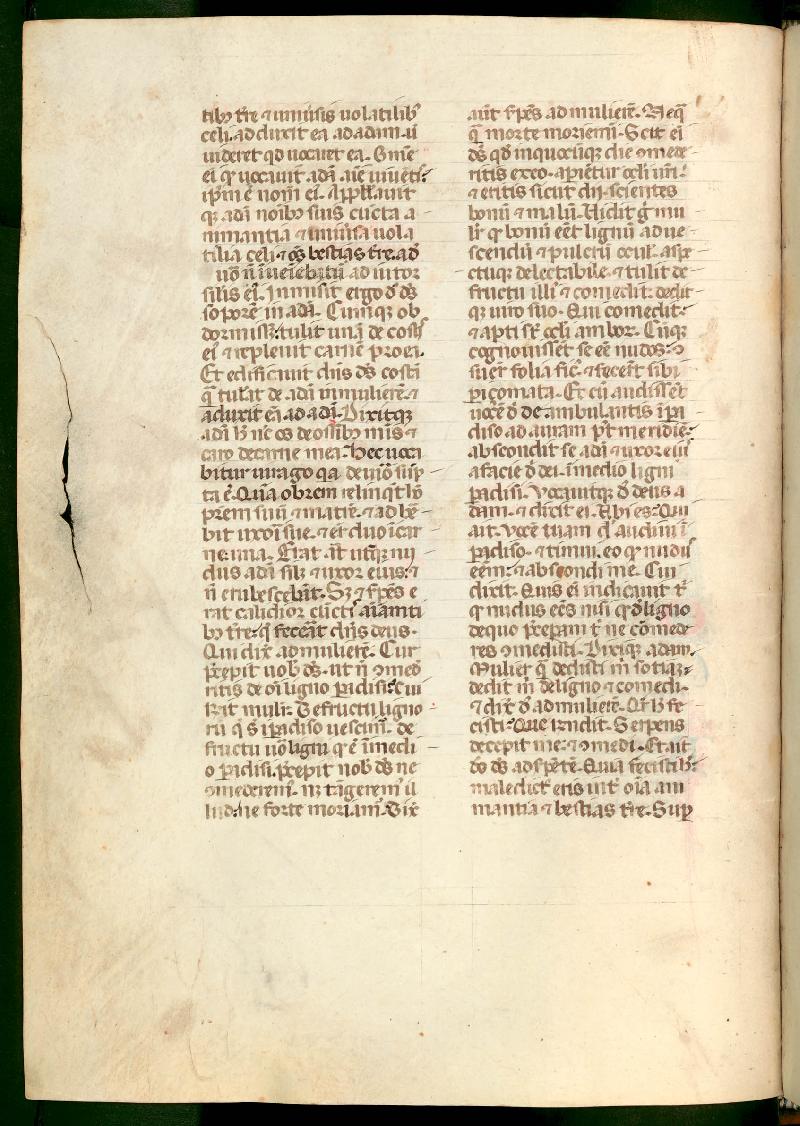 tibꝫ t̄re ⁊ uniu̅sis uolatilibꝰ
celi. adduxit ea ad adam. ut
uideret qd uocaret ea. Om̅e
eī q̇ uocauit adā aīe uiuētꝭ
ip̅m ē nom̄ eīꝰ. Appellauit
qꝫ adā noībꝫ suis cūcta a
nimantia ⁊ uniu̅sa uola
tilia celi ⁊ oēs bestias t̄re. ad
uō n̄ īueniebat̄ ad iutor
silis eīꝰ. Inmisit ergo d̄ dꝭ
soporē in adā. Cumqꝫ ob
dormissꝫ. tulit unā de costꝭ
eīꝰ ⁊ repleuit carnē pro ea.
Et edificauit dn̄s dꝭ costā
q̄ tul̄at de adā in mulierē. ⁊
aduxit eā ad adā. Dixitqꝫ
adā h̄ nc̄ os de ossibꝫ mīs ⁊
caro de carne mea. Hec uoca
bitur uirago qa de uiro sūp
ta ē. Quā obrem relinq̄t hō
prem suū ⁊ matrē. ⁊ adhē
bit uxori sue. ⁊ er̄t duo ī car
ne una. Erat aūt ut̄qꝫ nu
dus adā silꝫ ⁊ uxor eius. ⁊
n̄ erubescebāt. Sꝫ ⁊ s̄pēs e
rat calidior cūctꝭ aīamti
bꝫ t̄re. q̄ fecerat dn̄s deus.
Qui dix̄ ad mulierē. Cur
p̄cepit uob̄ dꝭ. ut n̄ ꝯmed̄
ritis de oī ligno paꝛadisi. Cui
r̄ndit mulr̄. De fructu ligno
rū q̄ s̄ ī paꝛadiso uescim̄. de
fructu uō ligni q̄ ē ī medi
o paꝛadisi. p̄cepit nob̄ dꝭ ne
ꝯmederem̄. ⁊ ne tāgerem̄ il
lud. ne forte moriam̄. Dix̄
aūt s̄pēs ad mulierē. Neq̄
q̄ morte moriemī. Scit eī
dꝭ qd̄ in quocūqꝫ die ꝯmede
ritis ex eo. apient̄ ocl̄i ur̄i.
⁊ eritis sicut dij. scientes
bonū ⁊ malū. Uidit ḡ mu
lr̄ q̇ bonū eēt lignū ad ue
scendū ⁊ pulcrū oculꝭ. aspe
ctuqꝫ delectabile. ⁊ tulit de
fructu illꝰ ⁊ comedit. dedit
qꝫ uiro suo. Qui comedit.
⁊ apti s̄t ocl̄i amboꝝ. Cūqꝫ
cognouissēt se eē nudos. ꝯ
suer̄ folia ficꝰ. ⁊ fecer̄t sibi
pizomata. Et cū audissēt
uocē d̄ deambulantis ī pa
diso ad auram p̄t meridiē.
abscondit se adā ⁊ uxor eiꝰ
a facie d̄ dei. ī medio ligni
padisi. Vocauitqꝫ d̄ deus a
dam. ⁊ dixit ei. Vbi es. Qui
ait. Vocē tuam dn̄e audiui ī
padiso. ⁊ timui. eo q̇ nudꝰ
eēm. ⁊ abscondi me. Cui
dixit. Quis eī indicauit t̄
q̇ nudus eēs nisi q̇ d̄ ligno
de quo p̄cepam t̄ ne cōmede
res ꝯmedisti. Dixitqꝫ adam.
Mulier q̄ dedisti m̄ sotiā.
dedit m̄ de ligno ⁊ comedi.
⁊ dix̄ d̄ ad mulierē. Q̄r h̄ fe
cisti. Que r̄ndit. Serpens
decepit me. ⁊ ꝯmedi. Et ait
d̄ dꝭ ad s̄pētē. Quia fecisti h̄.
maledictꝰ eris int̄ oīa ani
mantia ⁊ bestias t̄re. Sup